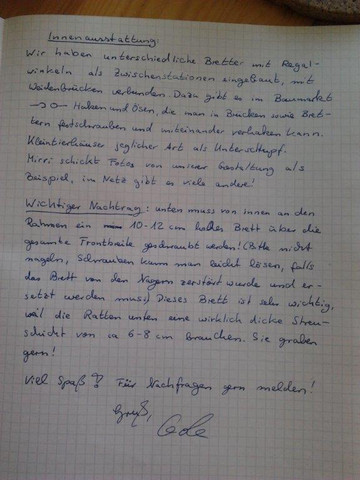 Innenausstattung:
Wir haben unterschiedliche Bretter mit Regal-
winkeln als Zwischenstationen eingebaut, mit
Weidenbrücken verbunden. Dazu gibt es im Baumarkt
→ o— Haken und Ösen, die man in Brücken sowie Bret-
tern festschrauben und miteinander verhaken kann.
Kleintierhäuser jeglicher Art als Unterschlupf.
Mirri schickt Fotos von unserer Gestaltung als
Beispiel, im Netz gibt es viele andere!
Wichtiger Nachtrag: unten muss von innen an den
Rahmen ein 10-12 cm hohes Brett über die
gesamte Frontbreite geschraubt werden! (Bitte nicht
nageln, Schrauben kann man leicht lösen, falls
das Brett von den Nagern zerstört wurde und er-
setzt werden muss) Dieses Brett ist sehr wichtig,
weil die Ratten unten eine wirklich dicke Streu-
schicht von ca 6-8 cm brauchen. Sie graben
gern!
Viel Spaß! Für Nachfragen gern melden!
Gruß,